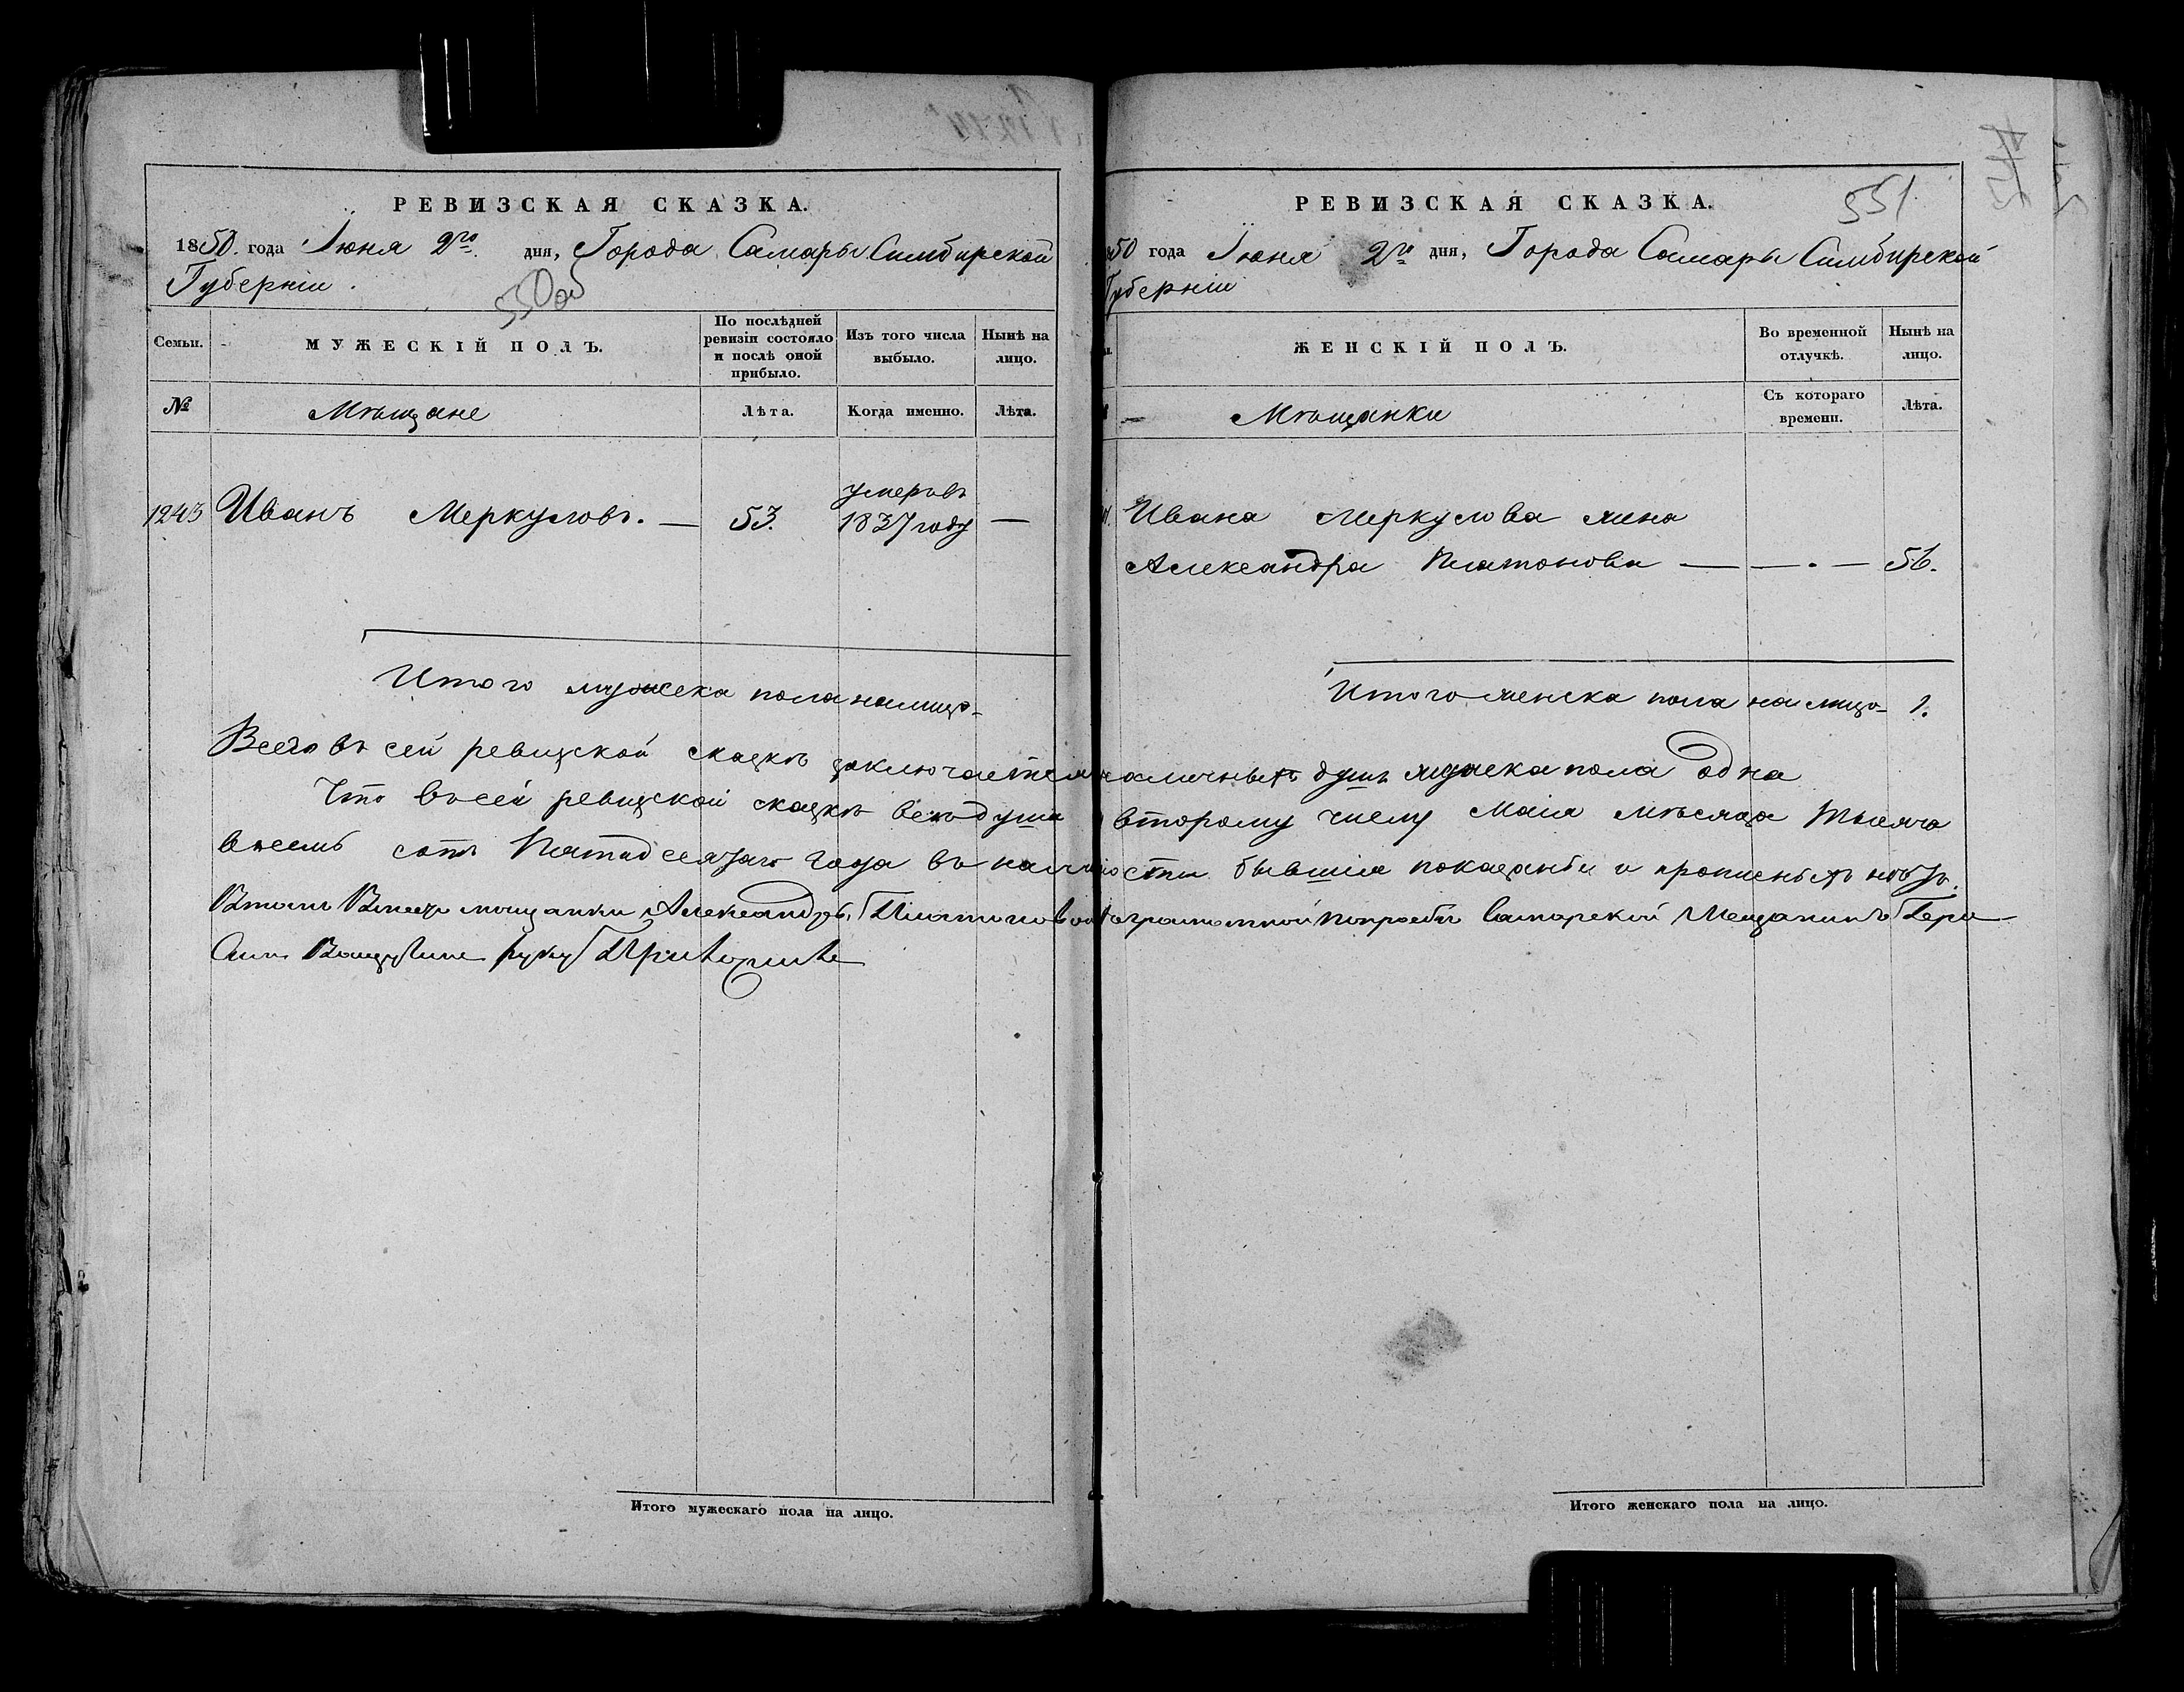 РЕВИЗСКАЯ СКАЗКА.
1850. года Іюня 2го дня, Города Самары Симбирской
Губерніи.
550об
Семьи.
МУЖЕСКІЙ ПОЛЪ.
По послѣдней ревизіи состояло и послѣ оной прибыло.
Изъ того числа выбыло.
Нынѣ на лицо.
№
Мѣщане
Лѣта.
Когда именно.
Лѣта.
1243 Иванъ Меркуловъ. — 53. умеръ въ 1837 году —
Итого мужеска пола налицо -
РЕВИЗСКАЯ СКАЗКА.
551
50 года Іюня 2го дня, Города Самары Симбирской
Губерніи
ЖЕНСКІЙ ПОЛЪ.
Во временной отлучкѣ.
Нынѣ на лицо.
Мѣщанки
Съ котораго времени.
Лѣта.
Ивана Меркулова жена
Александра Платонова — — . — 56.
Итого женска пола на лицо - 1.
Всего въ сей ревизской сказкѣ заключается наличныхъ душъ женска пола одна
Что въ сей ревизской сказкѣ всѣ души второму числу Маія мѣсяца тысяча
восемь сотъ Пятидесятаго года въ наличности бывшія показаны и прописныхъ нѣтъ.
Вместо мещанки Александры Платоновой Неграмотной попрозбѣ Самарской Мещанинъ Гера
симъ руку Приложилъ
Итого мужескаго пола на лицо.
Итого женскаго пола на лицо.